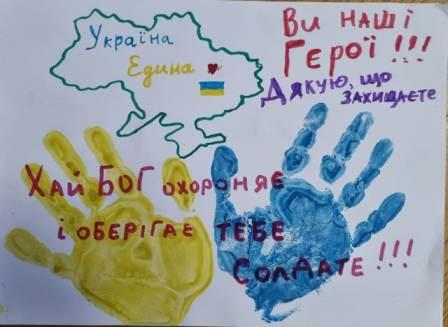 Україна
Єдина
Ви наші
Герої!!!
Дякую, що
захищаєте
Хай Бог охороняє
і оберігає тебе
Солдате!!!